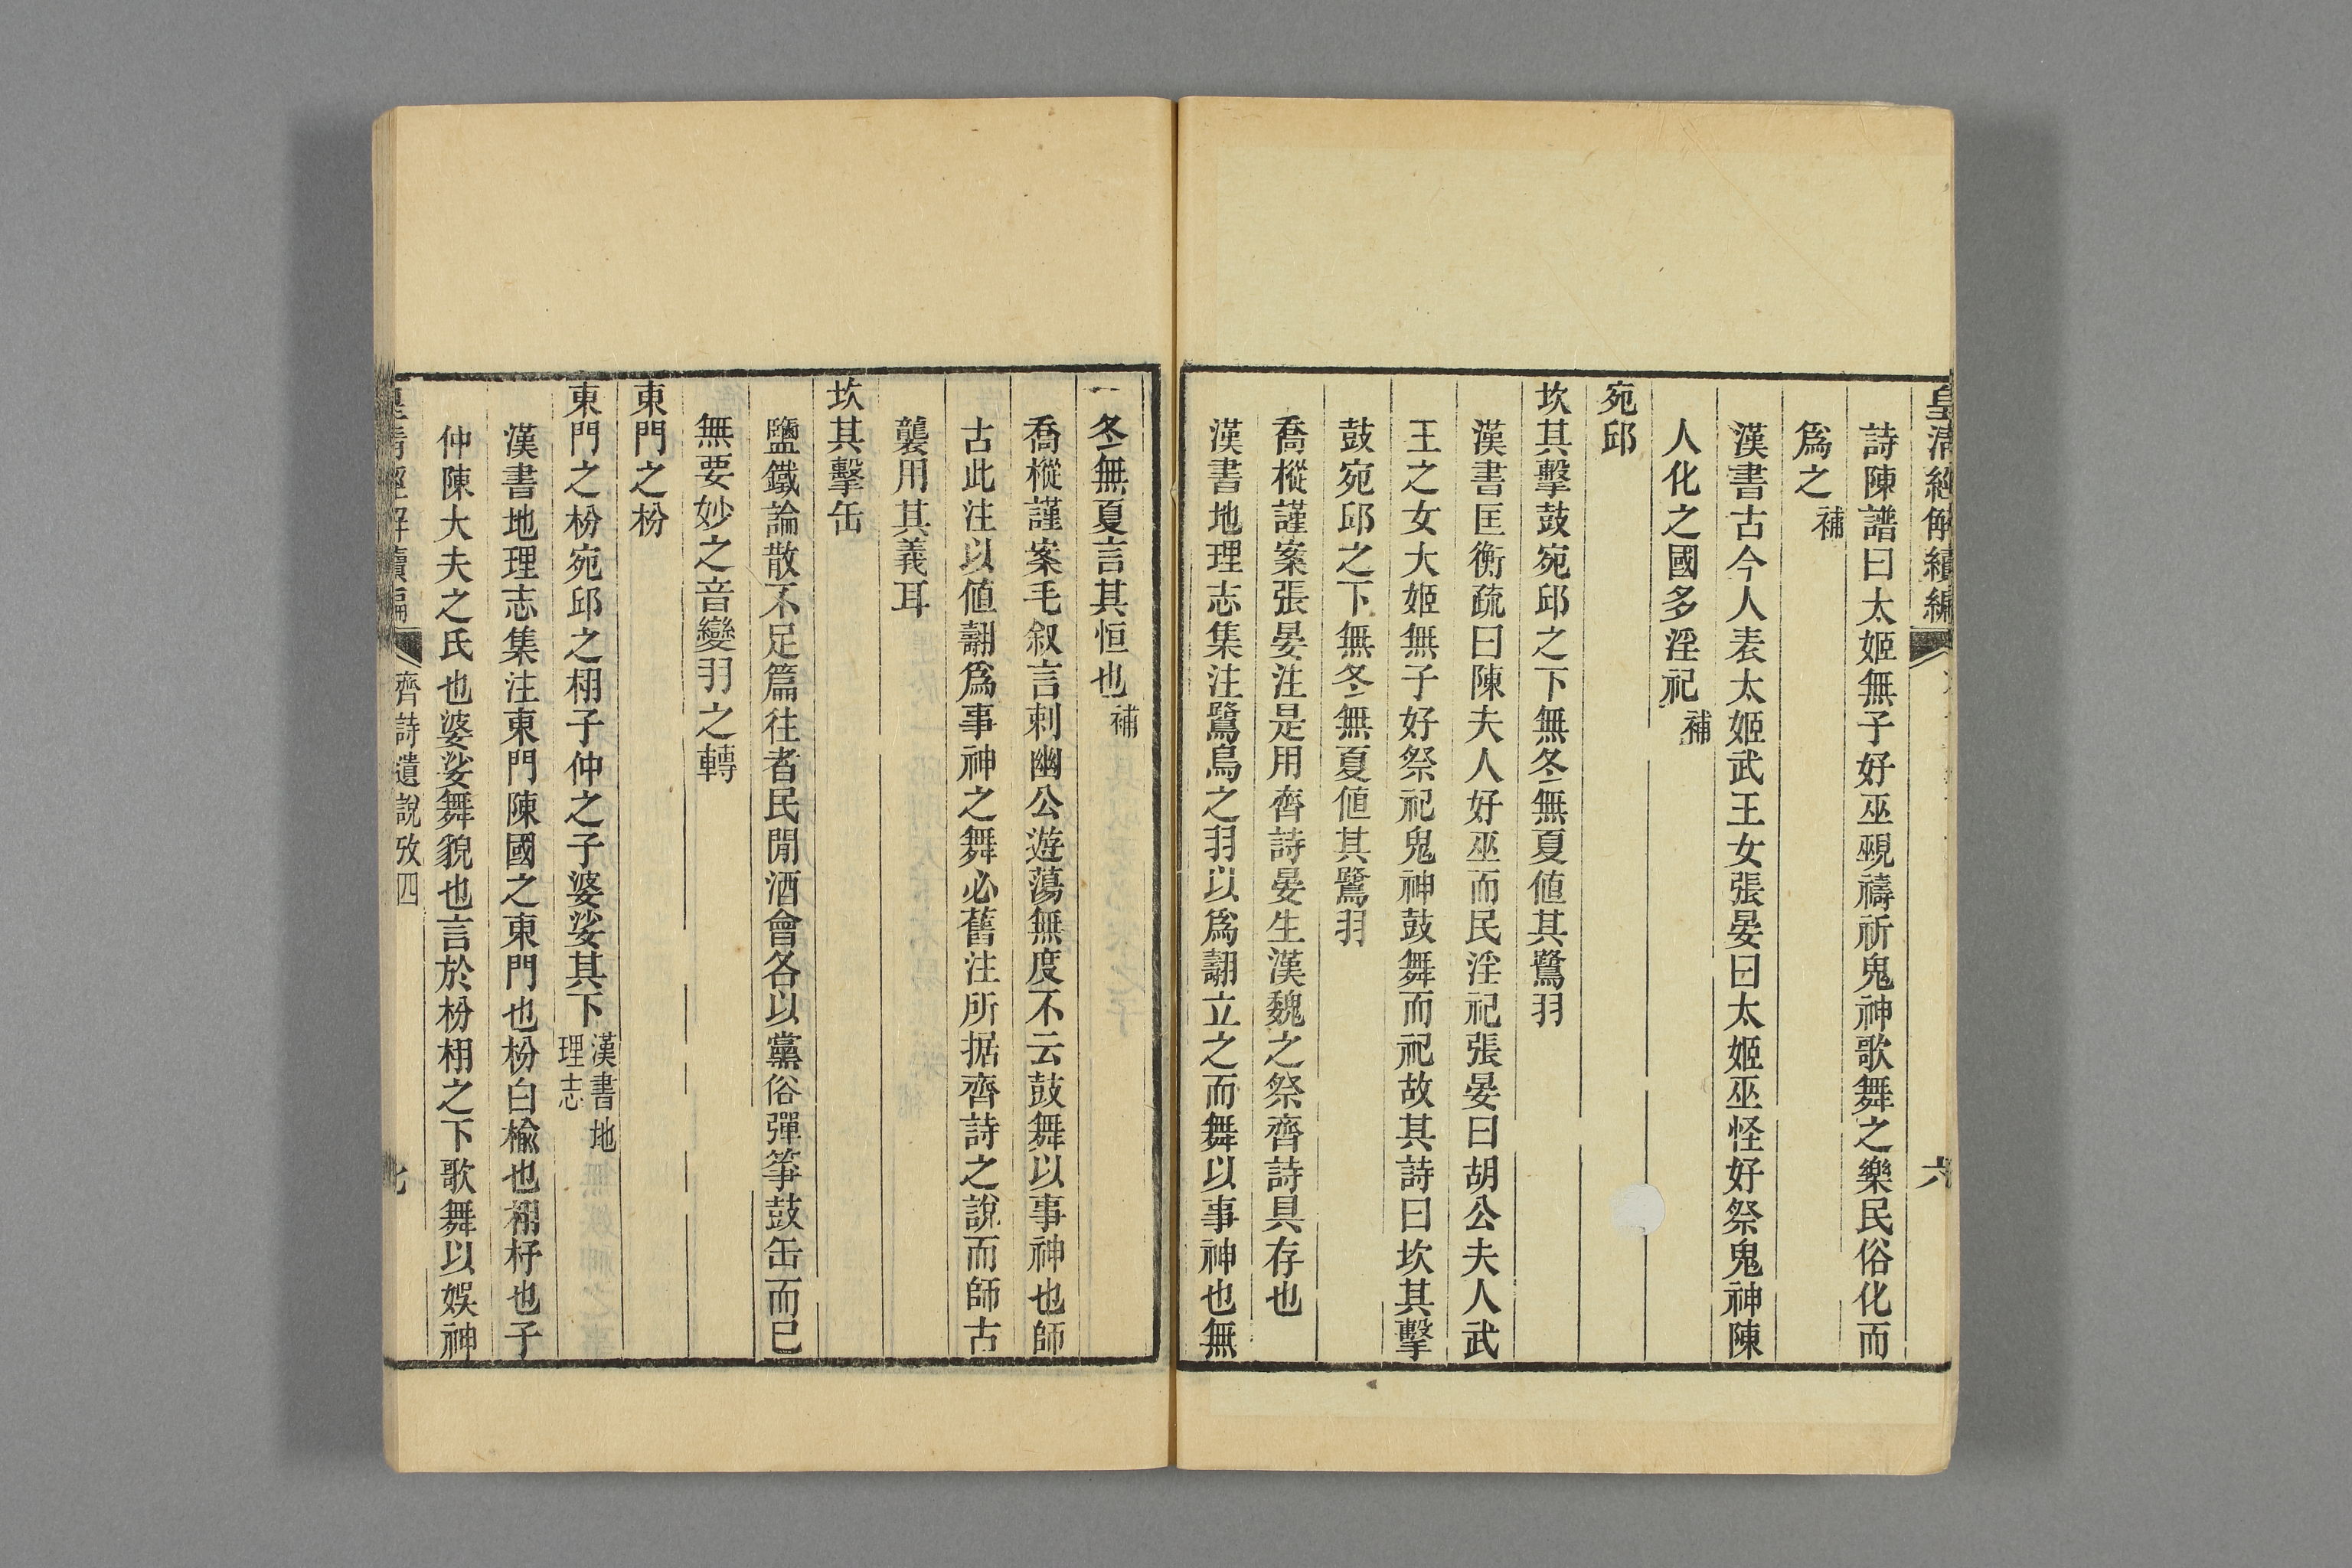 皇清經解續編
六
詩陳譜曰太姬無子好巫覡禱祈鬼神歌舞之樂民俗化而
爲之補
漢書古今人表太姬武王女張晏曰太姬巫怪好祭鬼神陳
人化之國多淫祀補
宛邱
坎其擊鼓宛邱之下無冬無夏値其鷺羽
漢書匡衡疏曰陳夫人好巫而民淫祀張晏曰胡公夫人武
王之女大姬無子好祭祀鬼神鼓舞而祀故其詩曰坎其擊
鼓宛邱之下無冬無夏値其鷺羽
喬樅謹案張晏注是用齊詩晏生漢魏之祭齊詩具存也
漢書地理志集注鷺鳥之羽以爲翿立之而舞以事神也無
冬無夏言其恒也補
喬樅謹案毛叙言刺幽公遊蕩無度不云鼓舞以事神也師
古此注以値翿爲事神之舞必舊注所据齊詩之說而師古
襲用其義耳
坎其擊缶
鹽鐵論散不足篇往者民閒酒會各以黨俗彈箏鼓缶而已
無要妙之音變羽之轉
東門之枌
東門之枌宛邱之栩子仲之子婆娑其下漢書地理志
漢書地理志集注東門陳國之東門也枌白楡也栩杼也子
仲陳大夫之氏也婆娑舞貌也言於枌栩之下歌舞以娛神
皇清經解續編
齊詩遺說攷四
七